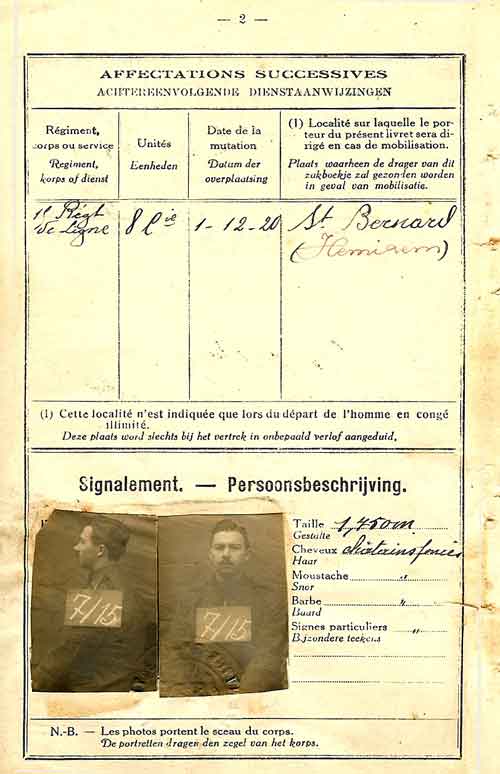 — 2 —
AFFECTATIONS SUCCESSIVES
ACHTEREENVOLGENDE DIENSTAANWIJZINGEN
Régiment,
corps ou service
Regiment,
korps of dienst
Unités
Eenheden
Date de la
mutation
Datum der
overplaatsing
(1) Localité sur laquelle le por-
teur du présent livret sera di-
rigé en cas de mobilisation.
Plaats waarheen de drager van dit
zakboekje zal gezonden worden
in geval van mobilisatie.
1e Régt
de Ligne
8 Cie
1-12-20
St Bernard
(Hemixem)
(1) Cette localité n'est indiquée que lors du départ de l'homme en congé
illimité.
Deze plaats word slechts bij het vertrek in onbepaald verlof aangeduid,
Signalement. — Persoonsbeschrijving.
7/15
7/15
Taille 1,750m
Gestalte
Cheveux châtains foncés
Haar
Moustache "
Snor
Barbe "
Baard
Signes particuliers "
Bijzondere teekens
N.-B. — Les photos portent le sceau du corps.
De portretten dragen den zegel van het korps.